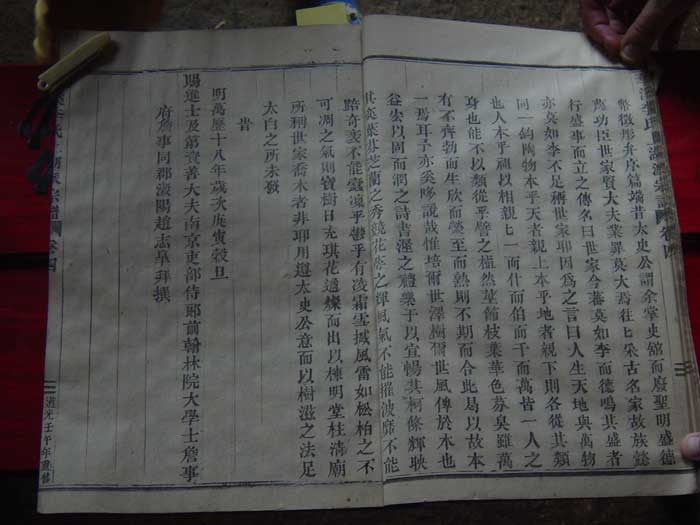 幣徵形弁序篇端昔太史公謂余掌史舘而廢聖明盛德
爲功臣世家賢大夫業罪莫大焉往七朵古名家故族懿
行盛事而立之傳名曰世家今蕃莫如李而德鳴其盛者
亦莫如李不足稱世家耶因爲之言曰人生天地與萬物
同一鈞陶物本乎天者親上本乎地者親下則各從其類
也人本乎祖以相親七一而什而伯而千而萬皆一人之
身也能不以類從乎譬之植然莖餙枝葉華色芬臭雖萬
有不齊勃而生欣而榮至而熟則不期而合此曷以故本
一焉耳予亦奚哆說哉惟培爾世澤樹爾世風俾於本也
益宏以固而潤之詩書渥之禮樂于以宜暢其柯條輝映
其英葉芬芝蘭之秀競花萼之輝風氣不能摧波靡不能
踣奇衺不能蠹嵬乎巒乎有凌霜雪撼風雷如松柏之不
可凋之氣則寶樹日充琪花遒燦而出以棟明堂柱清廟
所稱世家喬木者非耶用遵太史公意而以樹滋之法足
太白之所未發
旹
明萬歷十八年歲次庚寅穀旦
賜進士及第資善大夫南京吏部侍郎前翰林院大學士詹事
府詹事同郡瀫陽趙志臯拜撰
卷四
道光壬午年重修